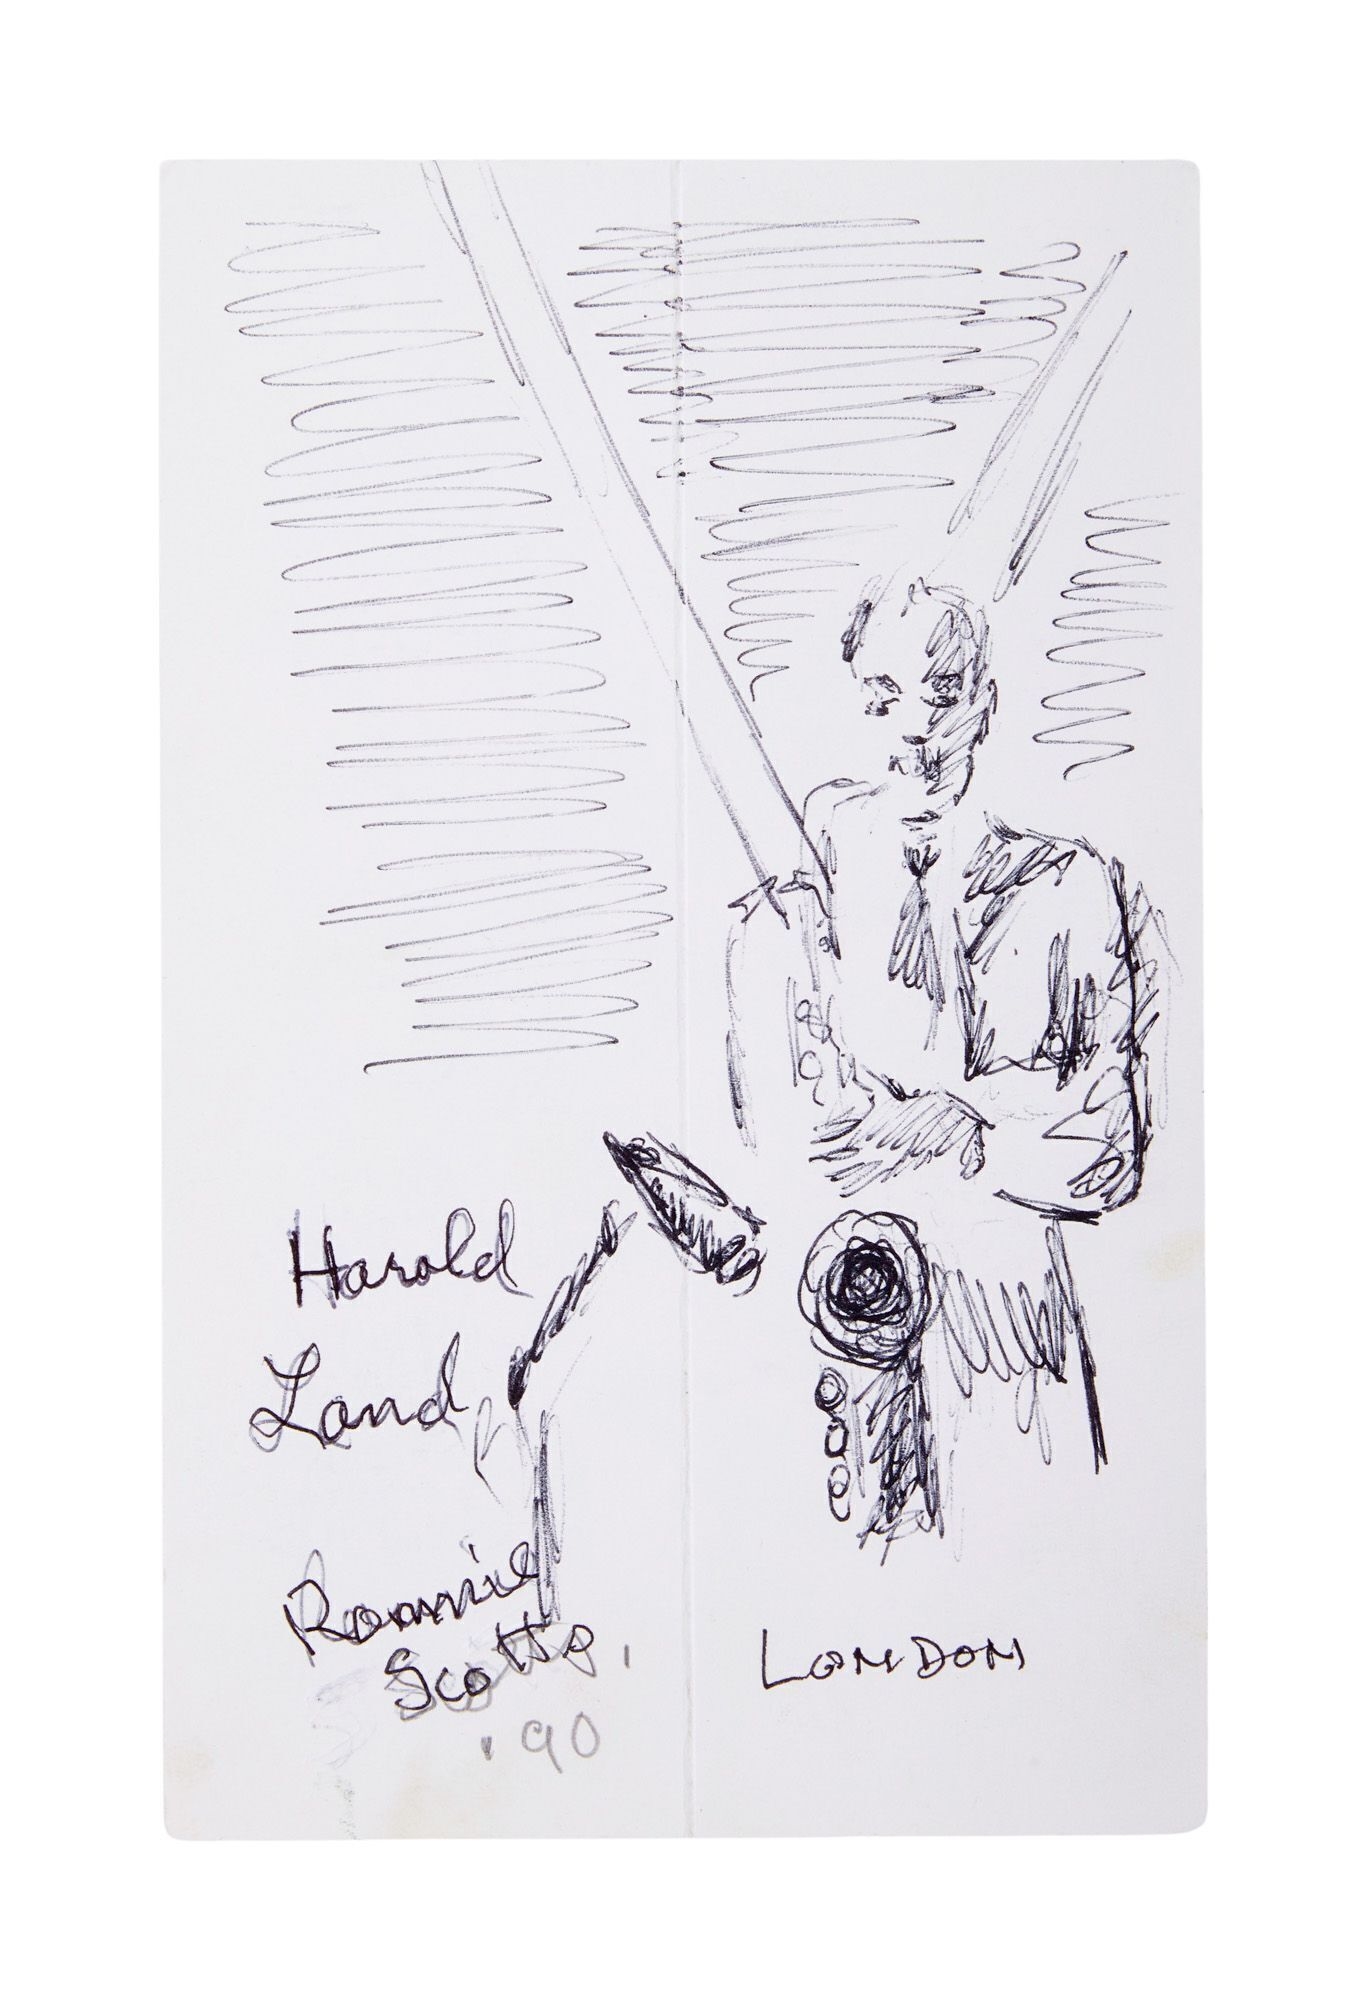 Harold
Land
Ronnie
Scotts.
'90
LONDON